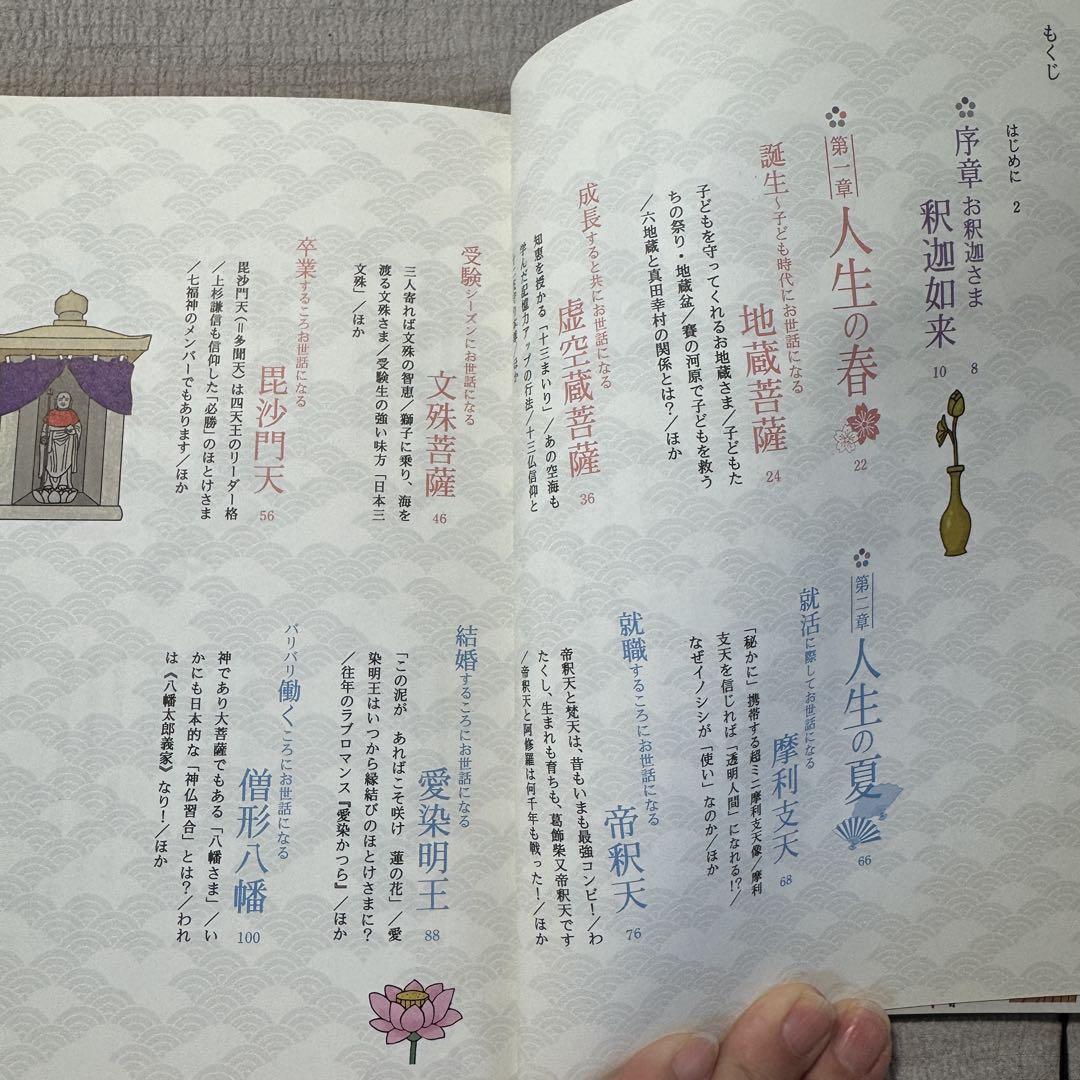 もくじ
はじめに 2
序章 お釈迦さま 8
釈迦如来 10
第一章 人生の春 22
誕生〜子ども時代にお世話になる
地蔵菩薩 24
子どもを守ってくれるお地蔵さま/子どもた
ちの祭り・地蔵盆/賽の河原で子どもを救う
/六地蔵と真田幸村の関係とは?/ほか
成長すると共にお世話になる
虚空蔵菩薩 36
知恵を授かる「十三まいり」/あの空海も
学んだ記憶力アップの行法/十三仏信仰と
受験シーズンにお世話になる
文殊菩薩 46
三人寄れば文殊の智恵/獅子に乗り、海を
渡る文殊さま/受験生の強い味方「日本三
文殊」/ほか
卒業するころお世話になる
毘沙門天 56
毘沙門天(=多聞天)は四天王のリーダー格
/上杉謙信も信仰した「必勝」のほとけさま
/七福神のメンバーでもあります/ほか
第二章 人生の夏 66
就活に際してお世話になる
摩利支天 68
「秘かに」携帯する超ミニ摩利支天像/摩利
支天を信じれば「透明人間」になれる!?/
なぜイノシシが「使い」なのか/ほか
就職するころにお世話になる
帝釈天 76
帝釈天と梵天は、昔もいまも最強コンビ!/わ
たくし、生まれも育ちも、葛飾柴又帝釈天です
/帝釈天と阿修羅は何千年も戦った!/ほか
結婚するころにお世話になる
愛染明王 88
「この泥が あればこそ咲け 蓮の花」/愛
染明王はいつから縁結びのほとけさまに?
/往年のラブロマンス『愛染かつら』/ほか
バリバリ働くころにお世話になる
僧形八幡 100
神であり大菩薩でもある「八幡さま」/い
かにも日本的な「神仏習合」とは?/われ
は《八幡太郎義家》なり!/ほか